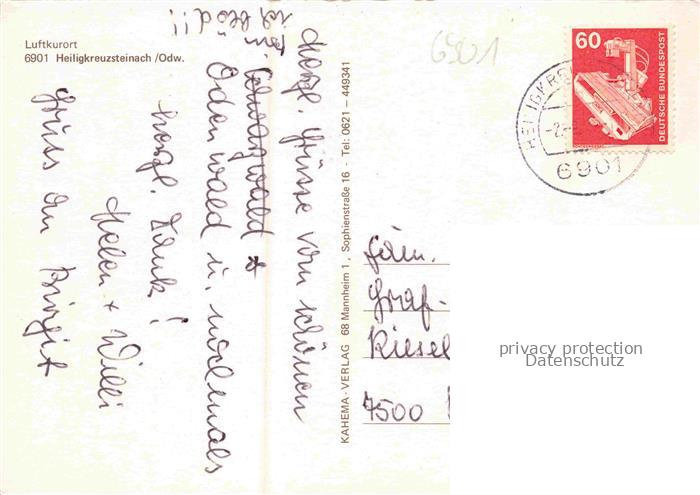 Luftkurort
6901 Heiligkreuzsteinach /Odw.
6901
60
DEUTSCHE BUNDESPOST
6901
Herzl. Grüsse vom schönen
Schwarzwald *
Odenwald u. nochmals
herzl. Dank!
Helen + Willi
Gruss an Birgit
* ist blöd!!
KAHEMA-VERLAG 68 Mannheim 1, Sophienstraße 16 · Tel: 0621 – 449341
Fam.
Graf-
Riesel
7500
privacy protection
Datenschutz